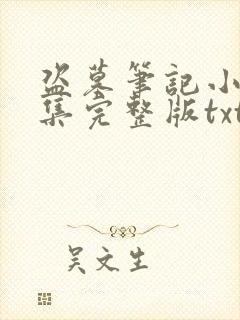 盗墓筆記小
集完整版txt
吴文生